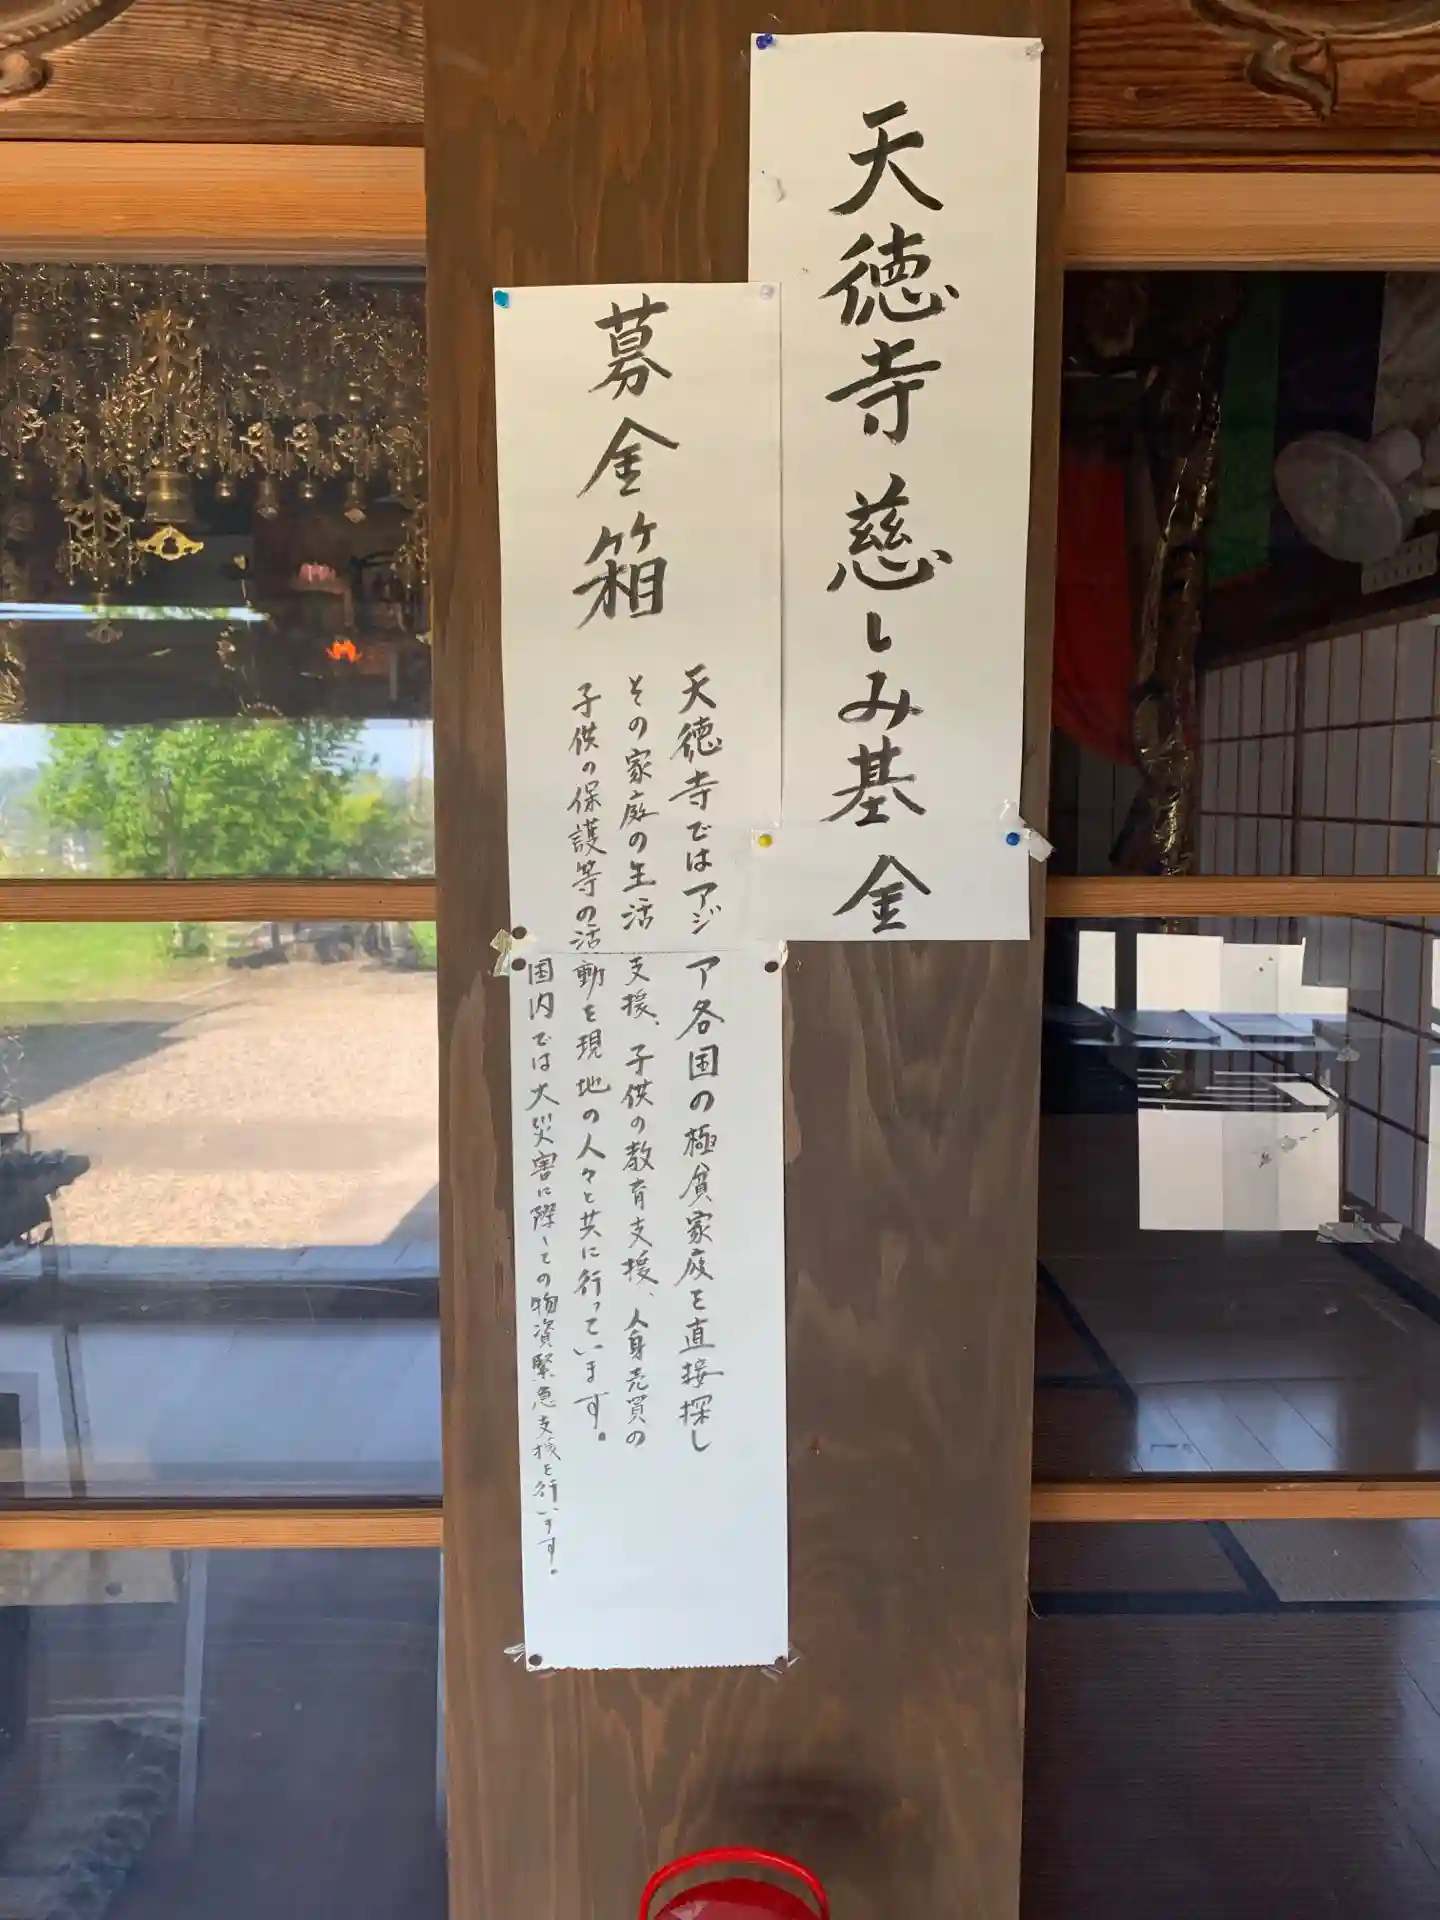 天徳寺慈しみ基金
募金箱
天徳寺ではアジア各国の極貧家庭を直接探し
その家庭の生活支援、子供の教育支援、人身売買の
子供の保護等の活動を現地の人々と共に行っています。
国内では大災害に際しての物資緊急支援を行います。